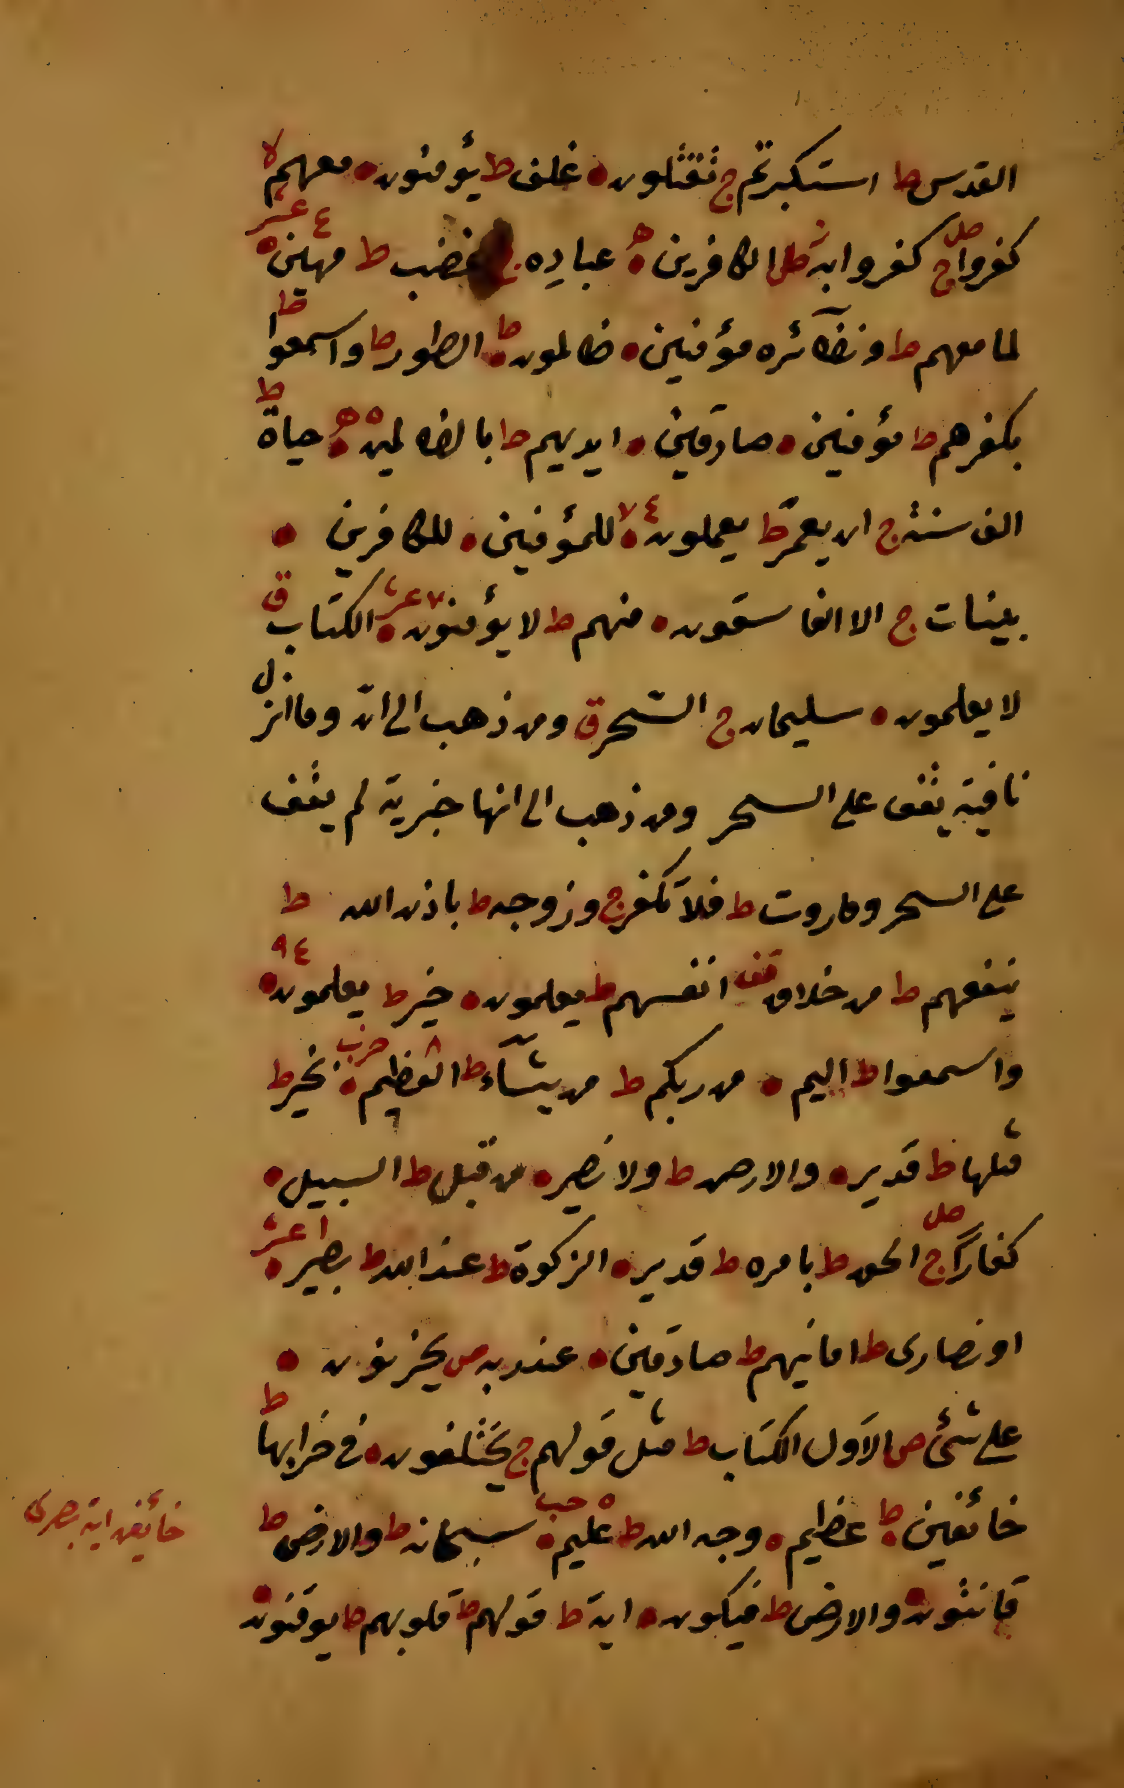 القدس ط استكبرتم ج تقتلون ه غلف ط يؤمنون ه معهم لا
كفروا ج صل كفروا به ز ط الكافرين ه عباده ج غضب ط مهين ه ٤ عشر
لما معهم ط ونظائره مؤمنين ه ظالمون ه ط الطور ط واسمعوا ط
بكفرهم ط مؤمنين ه صادقين ه ايديهم ط بالظالمين ه حياة ط
الف سنة ج ان يعمر ط يعملون ه ٧٤ للمؤمنين ه للكافرين ه
بينات ج الا الفاسقون ه منهم ط لا يؤمنون ه ٧ عشر الكتاب ق
لا يعلمون ه سليمان ج السحر ق ومن ذهب الى ان وما انزل
نافية يقف على السحر ومن ذهب الى انها خبرية لم يقف
على السحر وماروت ط فلا تكفر ج وزوجه ط باذن الله ط
ينفعهم ط من خلاق قف انفسهم ط يعلمون ه خير ط يعلمون ه ٩٤
واسمعوا ط اليم ه من ربكم ط من يشآء ط العظيم ه حزب نخير ط
مثلها ط قدير ه والارض ط ولا نصير ه من قبل ط السبيل ه
كفارا ج صل الحق ط بامره ط قدير ه الزكوة ط عند الله ط بصير ه ١ عشر
او نصارى ط امانيهم ط صادقين ه عند ربه ص يحزنون ه
على شئ ص الاول الكتاب ط مثل قولهم ج يختلفون ه في خرابها ط
خائفين ه ط عظيم ه وجه الله ط عليم ه حب سبحانه ط والارض ط
خائفين اية بصرى
قانتون ه والارض ط فيكون ه اية ط قولهم ط قلوبهم ط يوقنون ه